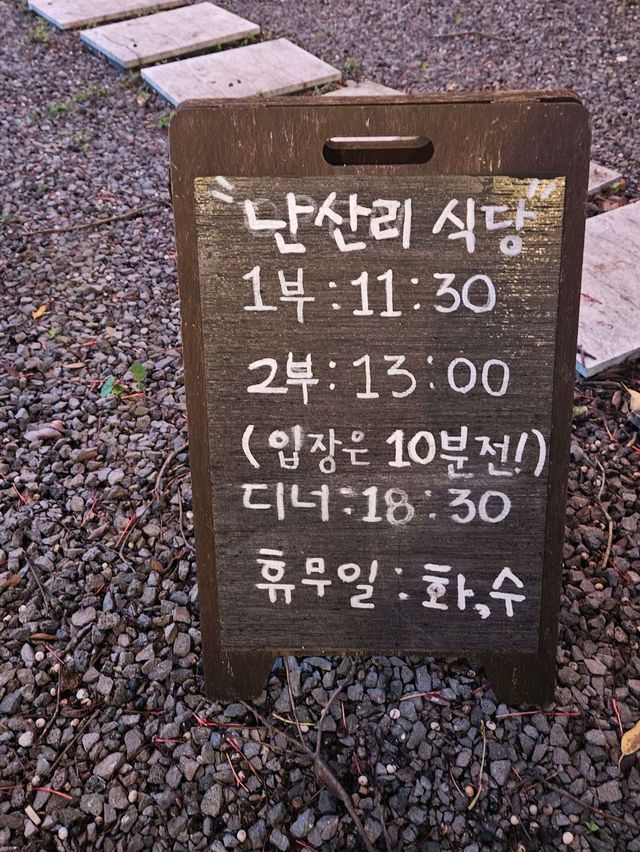 "난산리 식당"
1부:11:30
2부:13:00
(입장은 10분전!)
디너:18:30
휴무일:화,수